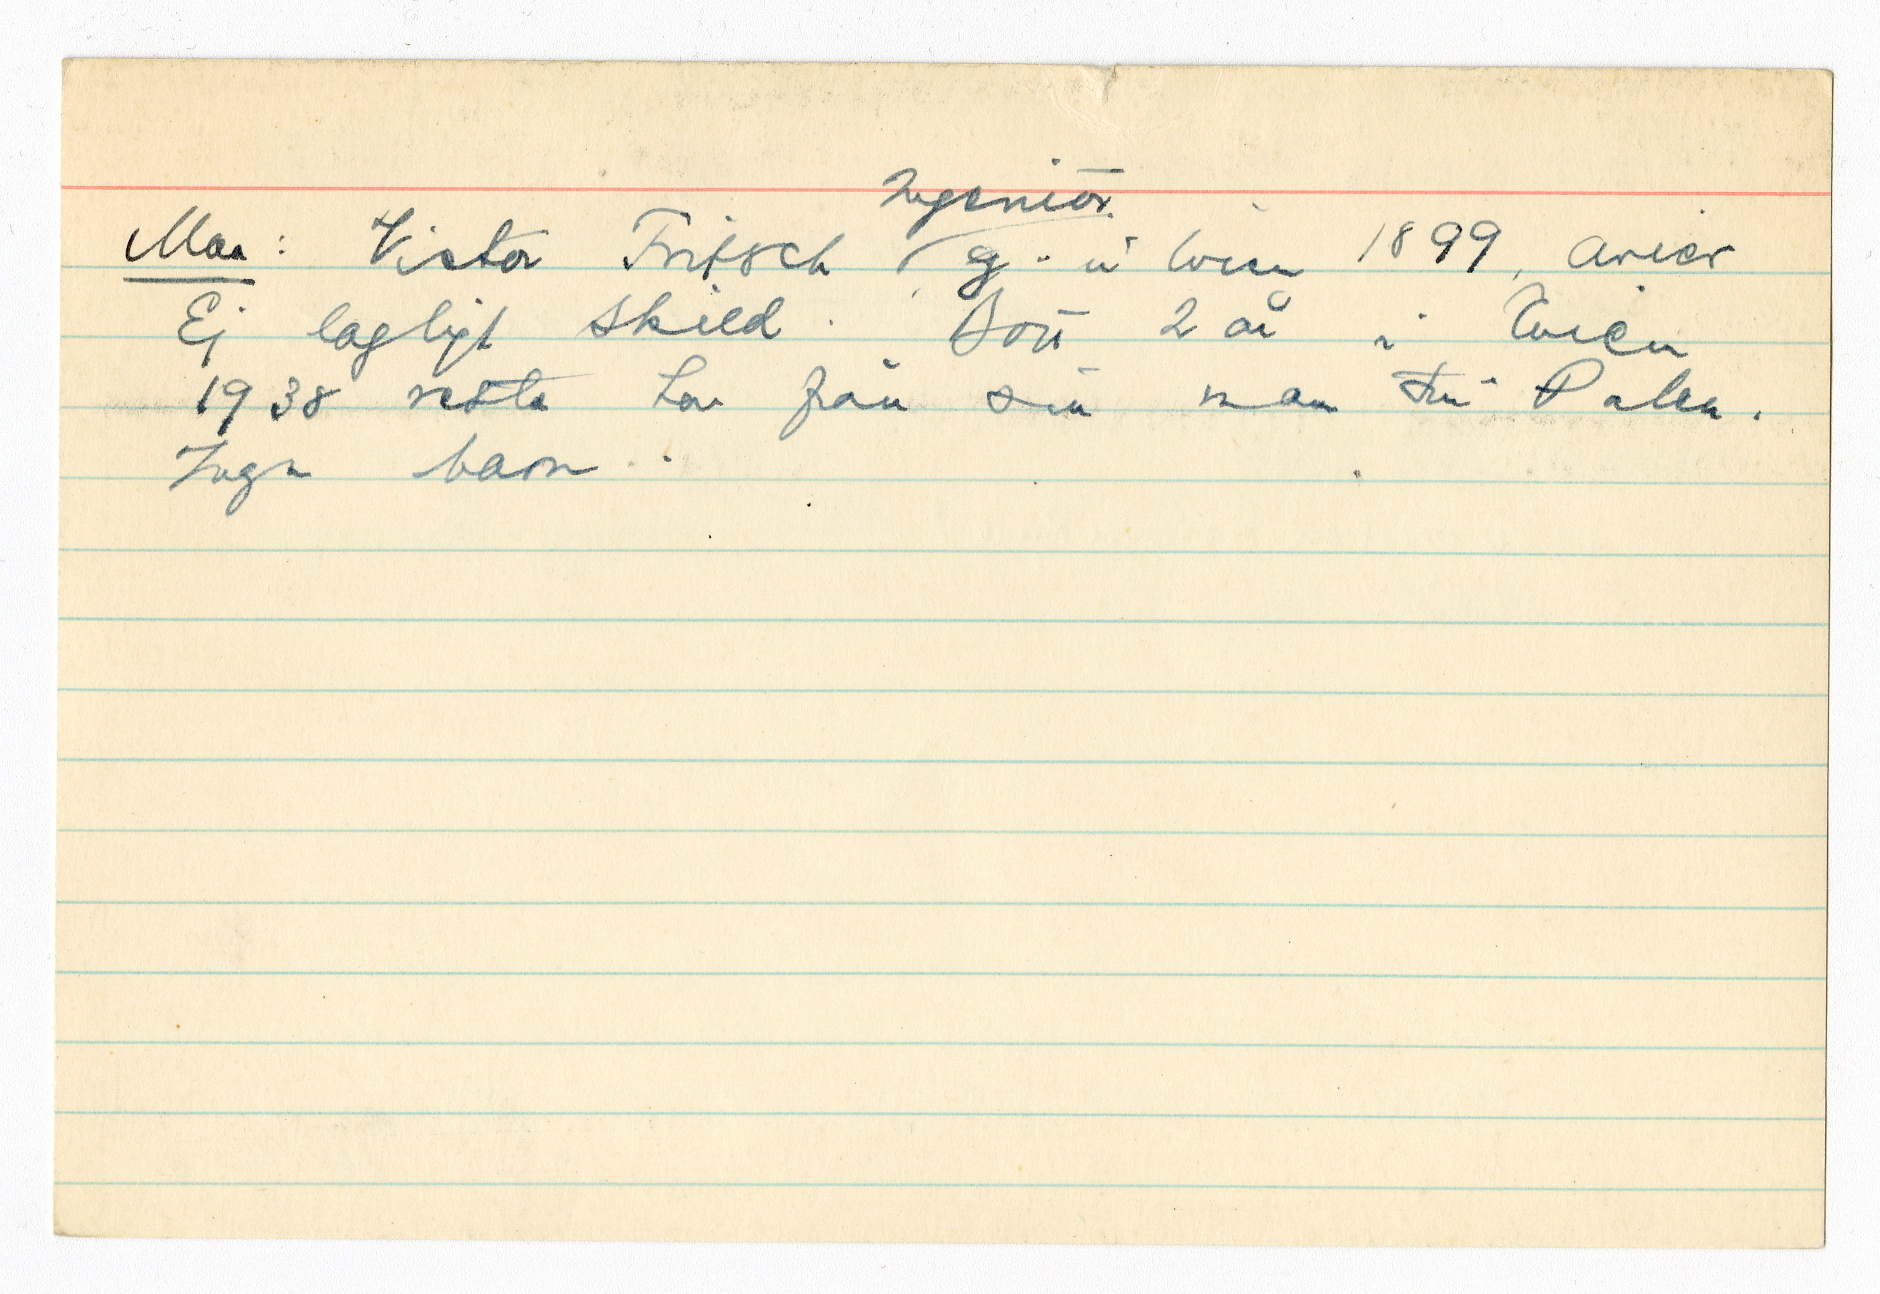 Ingeniör
Man: Victor Fritsch, g. i Wien 1899, arier
Ej lagligt skild. Bott 2 år i Wien
1938 reste hon från sin man till Polen.
Inga barn.